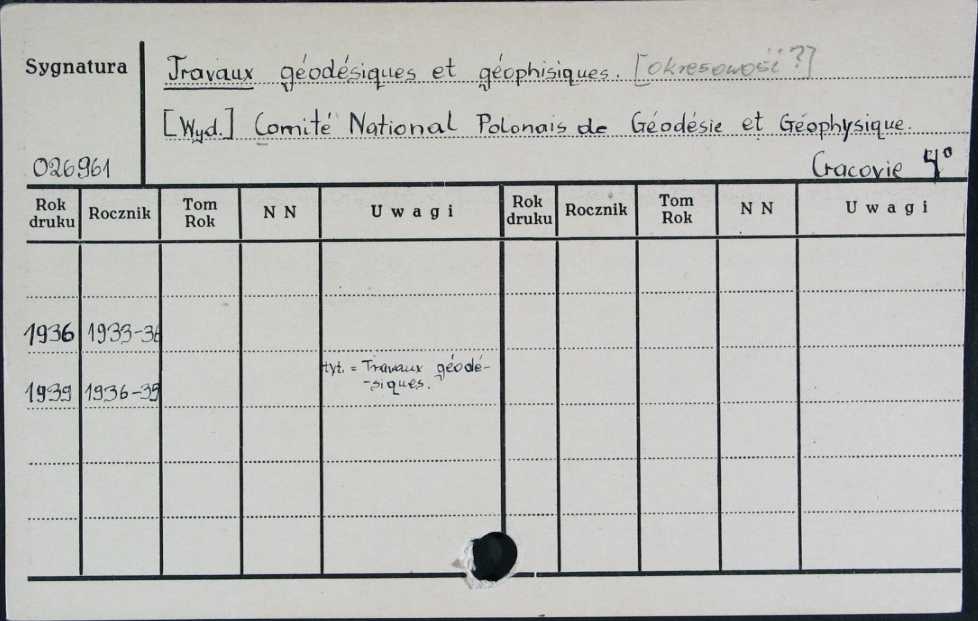 Sygnatura
Travaux géodésiques et géophisiques. [okresowość??]
[Wyd.] Comité National Polonais de Géodésie et Géophysique.
026961
Cracovie 4°
Rok druku Rocznik Tom Rok N N Uwagi Rok druku Rocznik Tom Rok N N Uwagi
1936 1933-36
tyt. = Travaux géodé-
1939 1936-39 -siques.